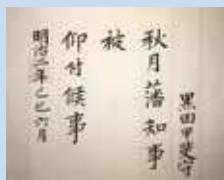 黒田甲斐守
秋月藩知事
被
仰付候事
明治二年己巳六月